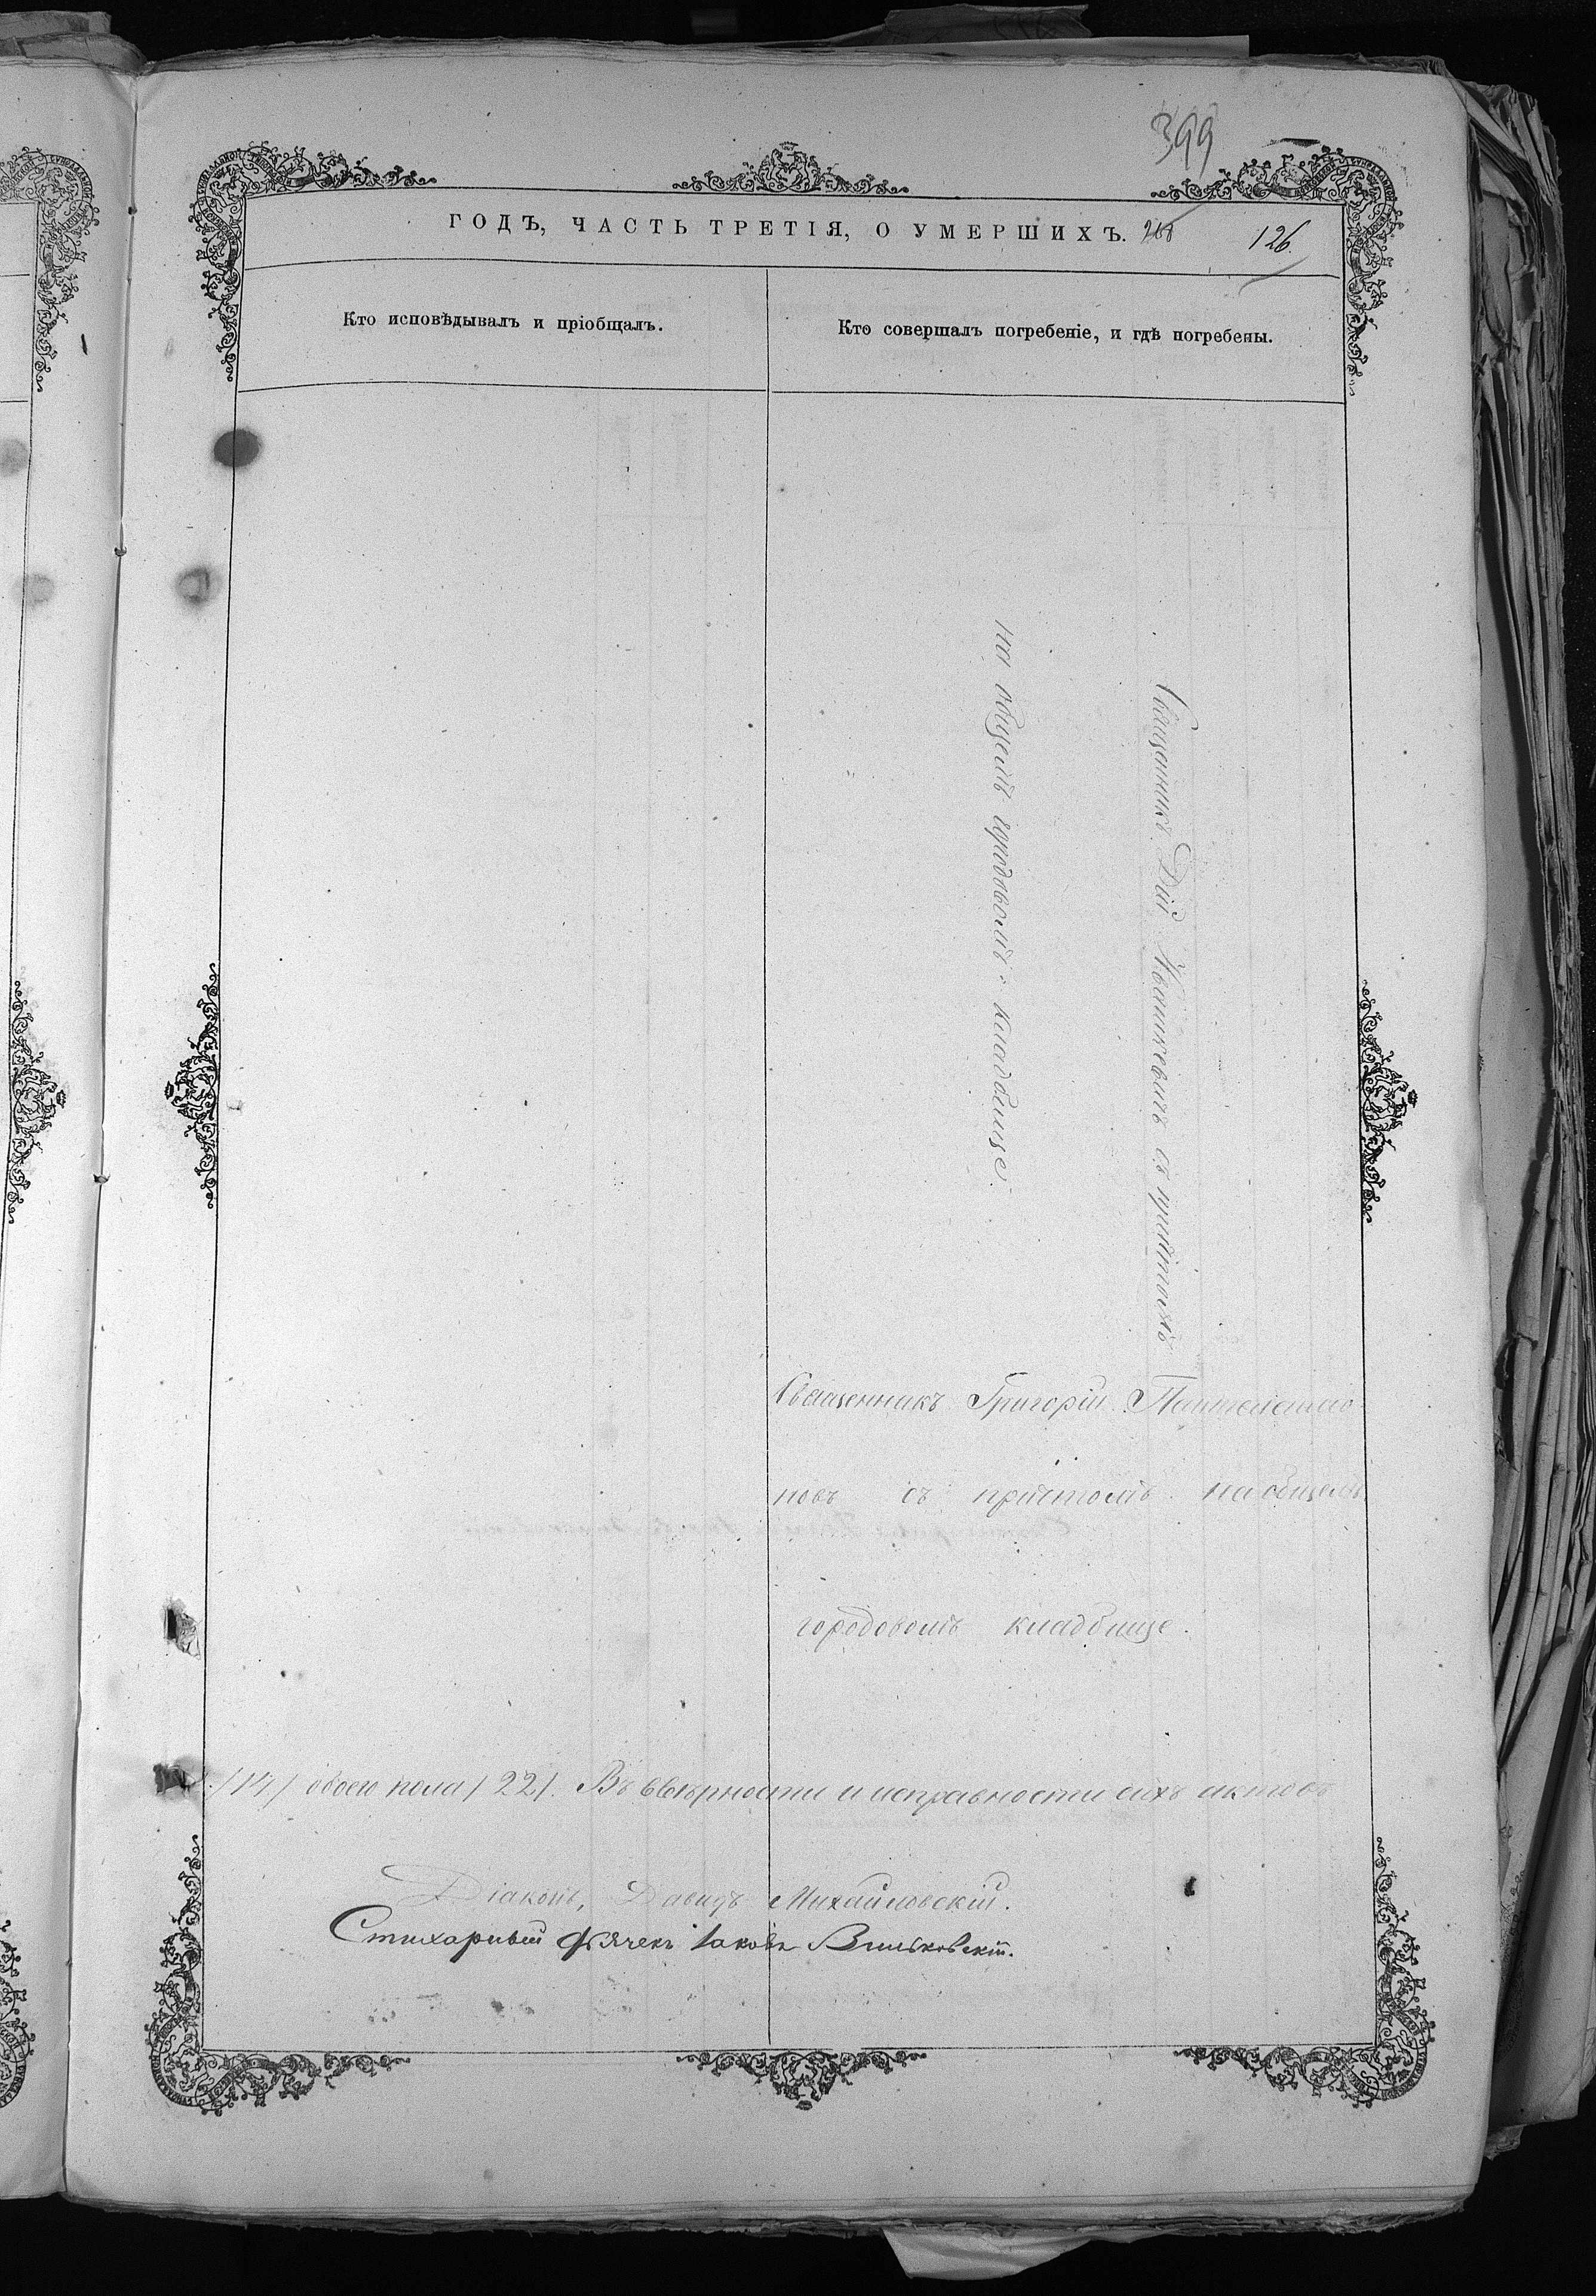 399
ГОДЪ, ЧАСТЬ ТРЕТІЯ, О УМЕРШИХЪ. 268 126.
Кто исповѣдывалъ и пріобщалъ.
Кто совершалъ погребеніе, и гдѣ погребены.
Священникъ Иванкевичъ съ причтомъ
на общемъ городовомъ кладбище.
Священникъ Григорій Пантелеимо
новъ съ причтомъ на общемъ
городовомъ кладбище.
обоего пола /22/. Въ вѣрности и исправности сихъ актовъ
Діаконъ, Давидъ Михайловскій.
Стихарный Іаковъ Вильковскій.